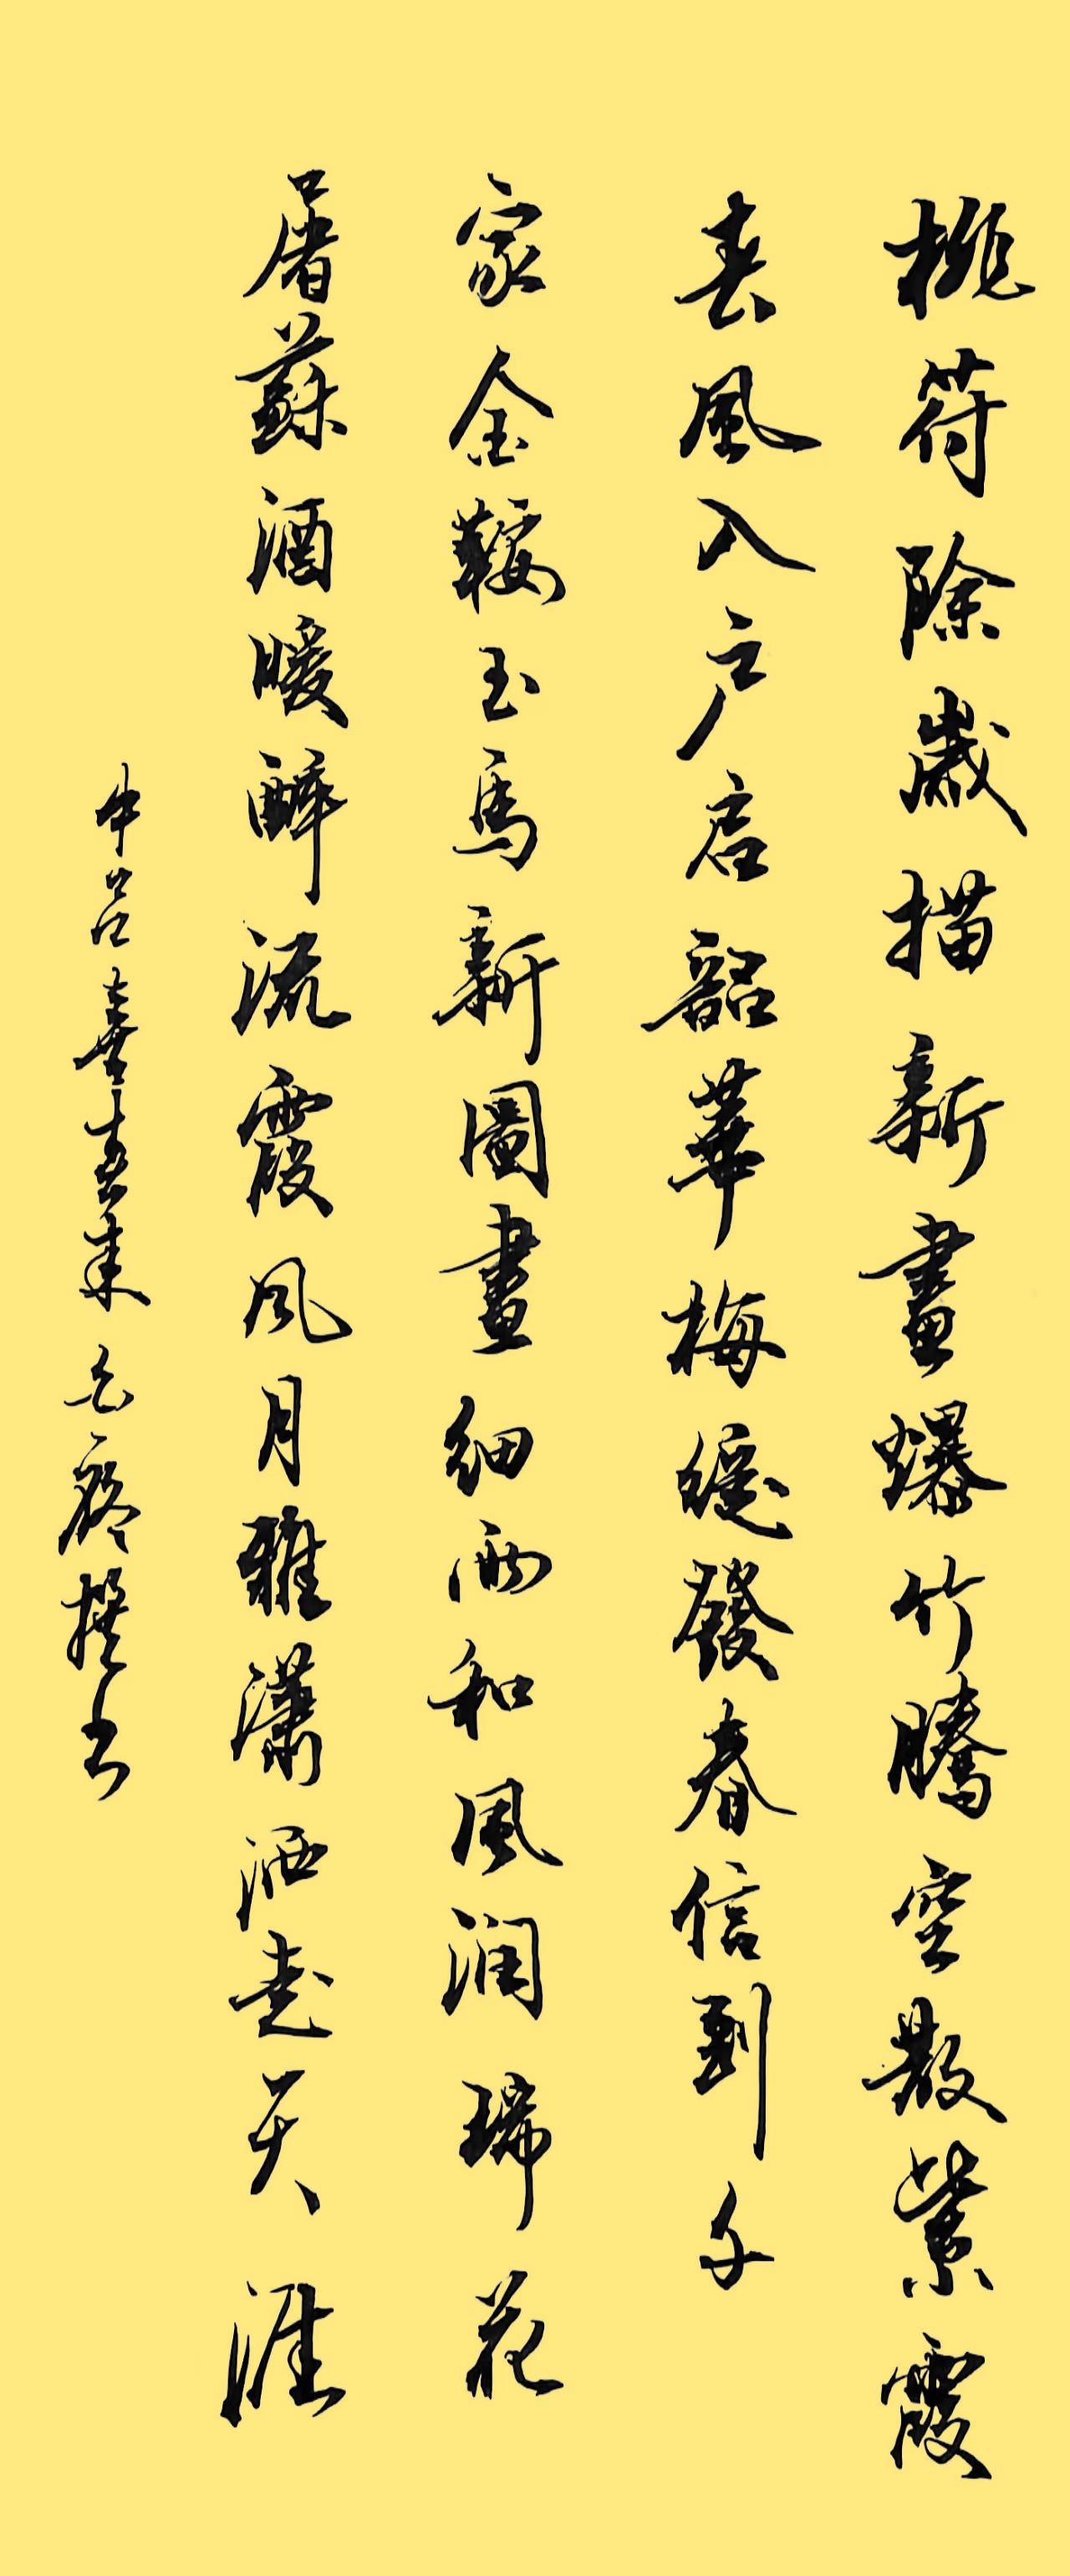 桃符除歲描新畫爆竹騰空散紫霞
春風入户启韶華梅綻發春信到千
家金鞍玉馬新圖畫細雨和風润瑞花
屠蘇酒暖醉流霞风月雅瀟洒走天涯
中吕喜春来 撰书